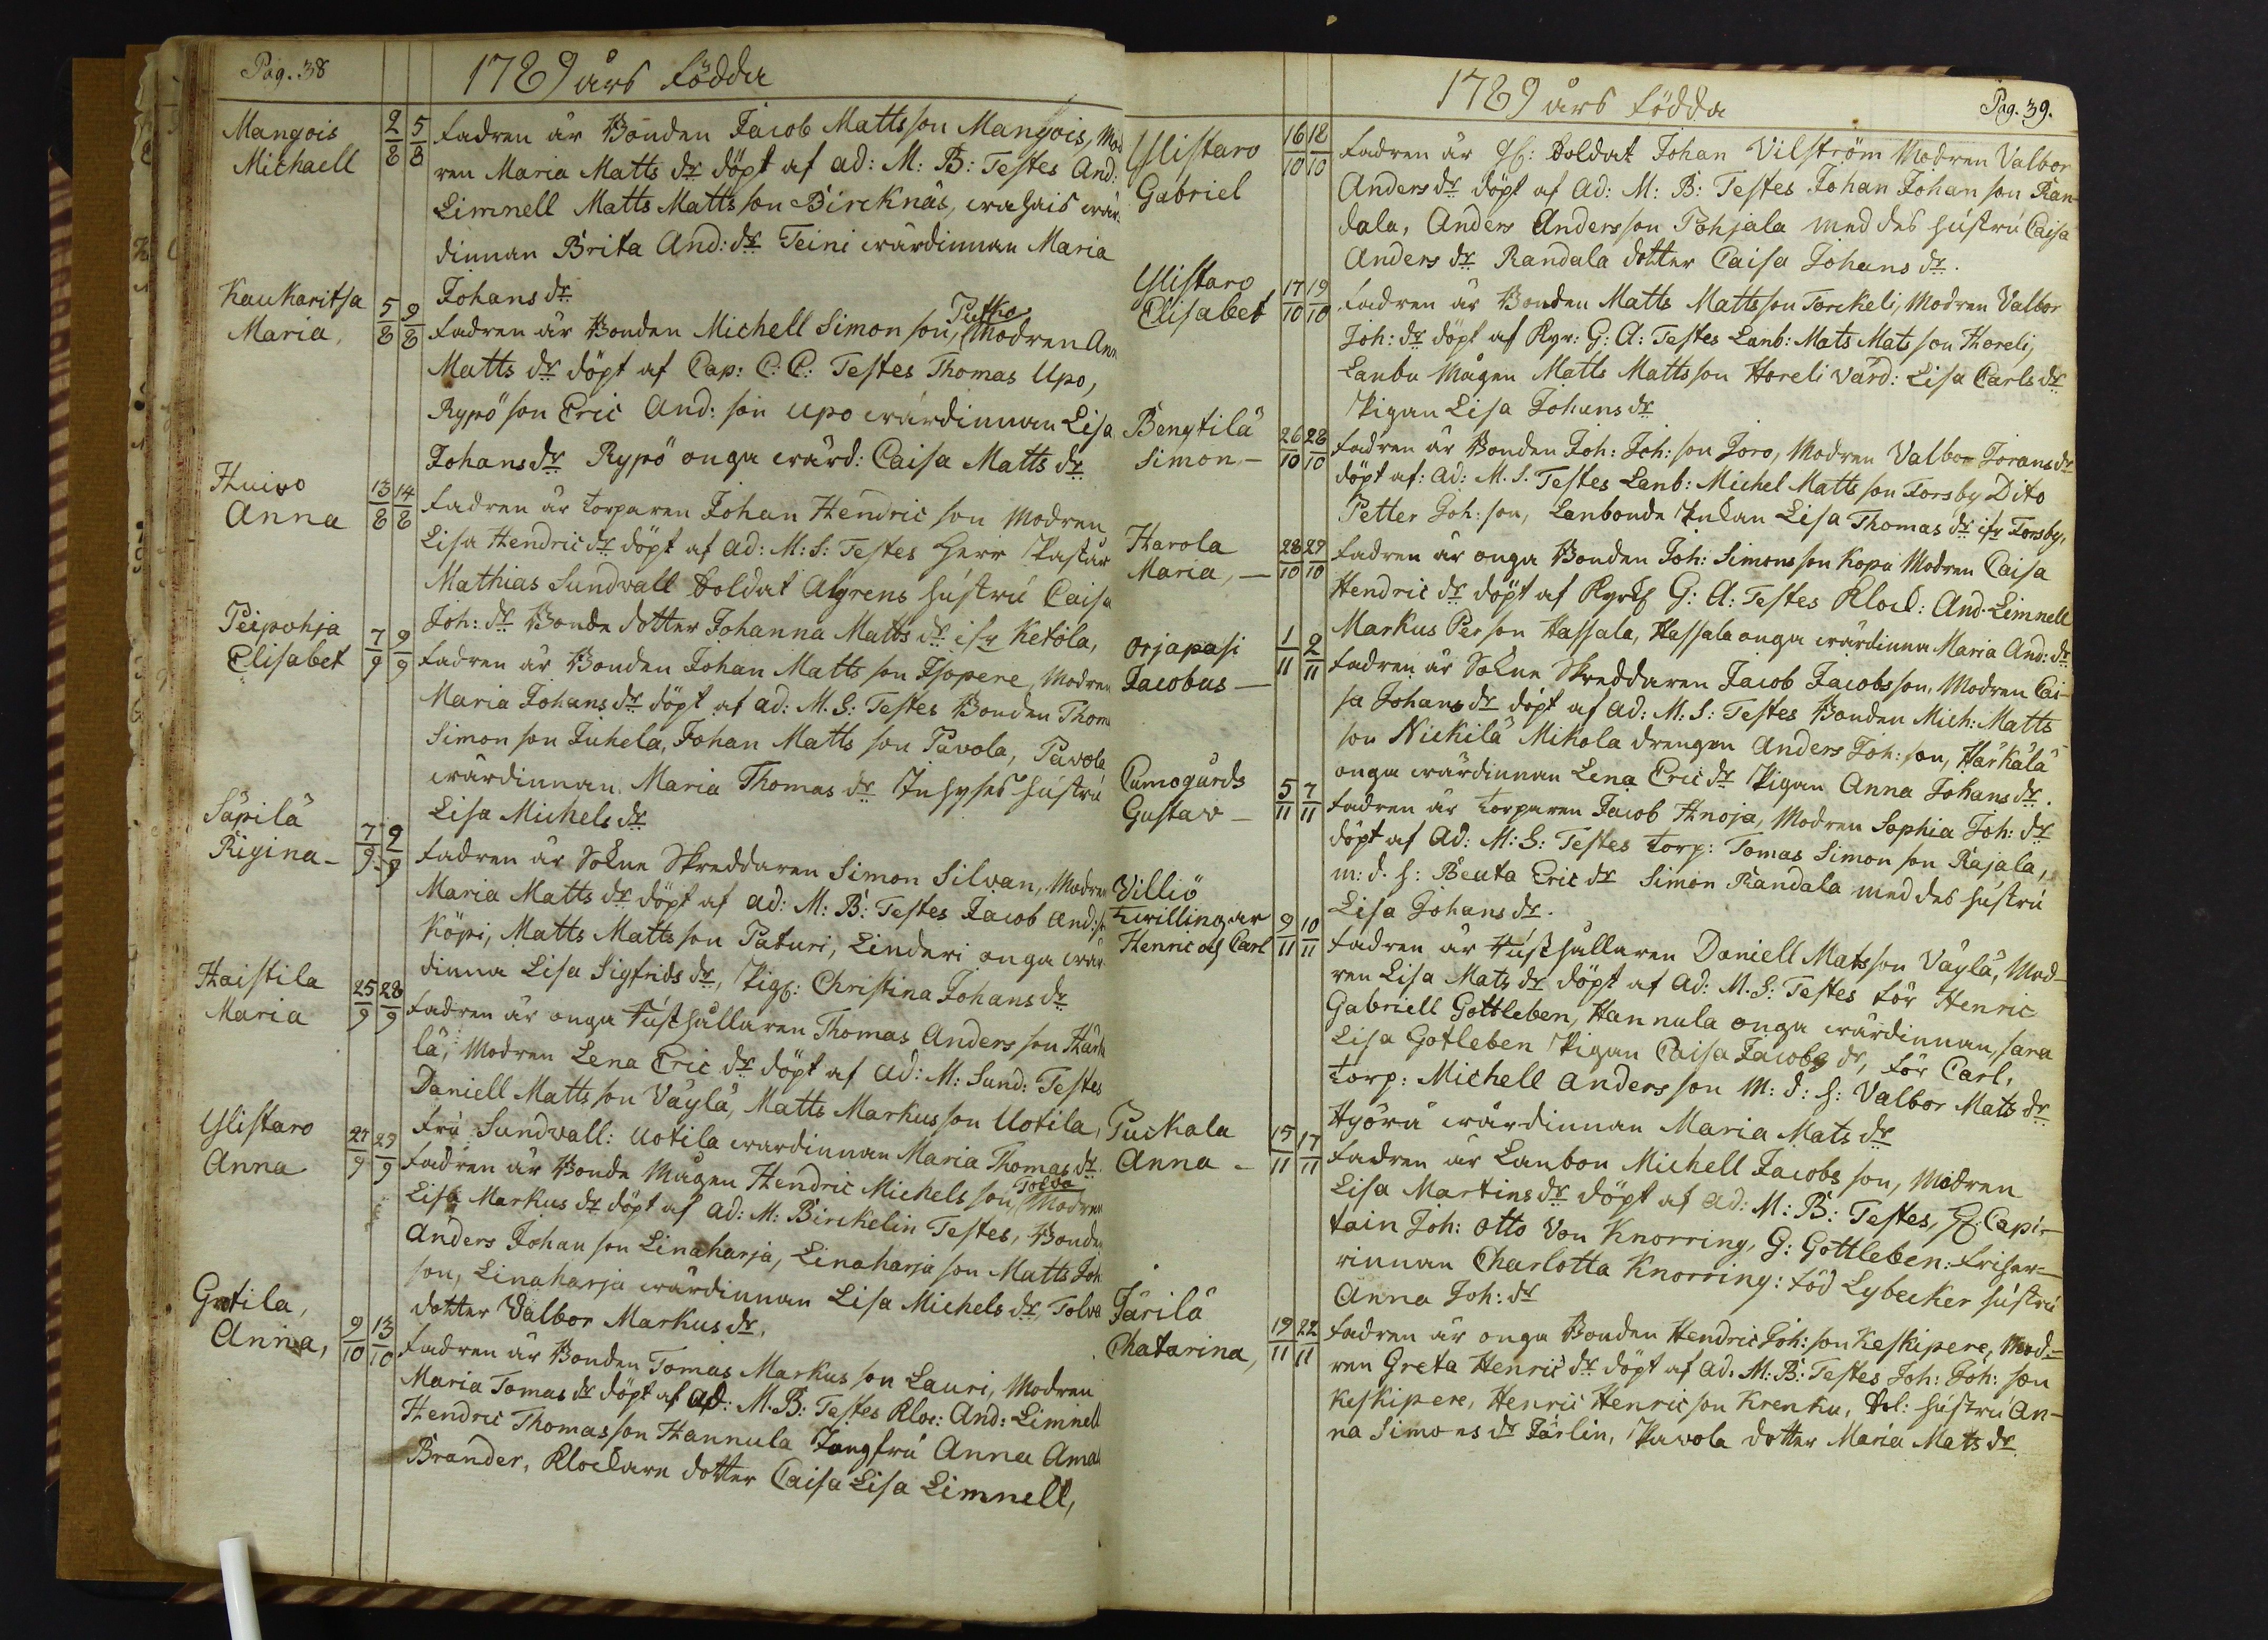 Pag. 38
1789 års födda
Mangois
Michaell
2/8 5/8
fadren är Bonden Jacob Mattsson Mangois, Mod
ren Maria Matts dr döpt af ad: M: B: Testes And:
Limnell Matts Mattsson Bircknäs, wär
dinnan Brita And: dr Teini wärdinnan Maria
Johans dr
Kaukaritsa
Maria,
5/8 9/8
fadren är Bonden Michell Simonson, Modren Ann
Matts dr döpt af Cap: C: C: Testes Thomas Upo,
Rypö son Eric And: son upo wärdinnan Lisa
Johans dr Rypö onga wärd: Caisa Matts dr
Huivo
Anna
13/8 14/8
fadren är torparen Johan Hendric son Modren
Lisa Hendric dr döpt af ad: M: S: Testes Herr Pastär
Mathias Sundvall Soldat Algrens hustru Caisa
Joh: dr Bonde dotter Johanna Matts dr ifr Ketola,
Peipohja
Elisabet
7/9 9/9
fadren är Bonden Johan Matts son Isopere, Modren
Maria Johans dr döpt af ad: M. S: Testes Bonden Thom
Simon son Juhela, Johan Matts son Pavola, Pavola
wärdinnan Maria Thomas dr Inhyses hustru
Lisa Michels dr
Säpilä
Rigina -
7/9 9/9
fadren är Sokne Skreddaren Simon Silvan, Modren
Maria Matts dr döpt af ad: M: B: Testes Jacob And: s
Köpi, Matts Matts son Paturi, Linderi onga wär
dinna Lisa Sigfrids dr, Pig: Christina Johans dr
Haistila
Maria
25/9 28/9
fadren är onga Rusthållaren Thomas Anders son Härkä
lä, Modren Lena Eric dr döpt af Ad: M: Sund: Testes
Daniell Matts son Väylä, Matts Markus son Uotila,
fru Sundvall: Uotila wärdinnan Maria Thomas dr
Ylistaro
Anna
27/9 29/9
Tolva
fadren är Bonde Mågen Hendric Michels son, Modren
Lisa Markus dr döpt af ad: M: Birckelin Testes, Bonde
Anders Johan son Linaharja, Linaharja son Matts Joh
son, Linaharja wärdinnan Lisa Michels dr, Tolva
dotter Valbor Markus dr.
Gotila,
Anna,
9/10 13/10
fadren är Bonden Tomas Markus son Lauri, Modren
Maria Tomas dr döpt af ad: M. B: Testes Kloc: And: Limnell
Hendric Thomas son Hannula Jungfru Anna Ama
Brander, Klockare dotter Caisa Lisa Limnell,
1789 års födda
Pag. 39.
Ylistaro
Gabriel
16/10 18/10
fadren är Soldat Johan Vilström Modren Valbor
Anders dr döpt af ad: M: B: Testes Johan Johan son Ran-
dala, Anders Anders son Pohjala med des hustru Caisa
Anders dr Randala dotter Caisa Johans dr.
Ylistaro
Elisabet
17/10 19/10
fadren är Bonden Matts Matts son Torckeli, Modren Valbor
Joh: dr döpt af Kyr: G: A: Testes Lanb: Mats Mats son Horeli,
Lanbu Mågen Matts Matts son Horeli värd: Lisa Carls dr
Pigan Lisa Johans dr
Bengtilä
Simon -
26/10 28/10
fadren är Bonden Joh: Joh: son Joro, Modren Valbor Jorans dr
döpt af: ad: M. S. Testes Lanb: Michel Matts son Forsby Dito
Petter Joh: son, Lanbonde Enkan Lisa Thomas dr ifr Forsby,
Harola
Maria, -
28/10 29/10
fadren är onga Bonden Joh: Simons son Kopa Modren Caisa
Hendric dr döpt af G: A: Testes Klock: And: Limnell
Markus Per son Hassala, Hassala onga wärdinna Maria And: dr
Orjapasi
Jacobus -
1/11 2/11
fadren är Sokne Skreddaren Jacob Jacobs son, Modren Cai-
sa Johans dr döpt af ad: M: S: Testes Bonden Mich: Matts
son Nickilä Mikola drengen Anders Joh: son, Härkälä
onga wärdinnan Lena Eric dr Pigan Anna Johans dr.
Cumogårds
Gustav -
5/11 7/11
fadren är torparen Jacob Hnoja, Modren Sophia Joh: dr
döpt af ad: M: S: Testes Torp: Tomas Simon son Rajala,
m: d. h: Beata Eric dr Simon Randala med des hustru
Lisa Johans dr.
Villiö
twillingar
Henric och Carl
9/11 10/11
fadren är Rusthållaren Daniell Mats son Väylä, Mod-
ren Lisa Mats dr döpt af ad: M. S: Testes för Henric
Gabriell Gottleben, Hannula onga wärdinnan, sara
Lisa Gotleben Pigan Caisa Jacobs dr, för Carl,
torp: Michell Anders son M: d: h: Valbor Mats dr
Hyörä wärdinnan Maria Mats dr
Puckala
Anna -
15/11 17/11
fadren är Lanbon Michell Jacobs son, Modren
Lisa Martins dr döpt af ad: M: B: Testes, H. Capi-
tain Joh: Otto Von Knorring, G: Gottleben: friher-
rinnan Charlotta Knorring: föd Lybecker hustru
Anna Joh: dr
Järilä
Chatarina,
19/11 22/11
fadren är onga Bonden Hendric Joh: son Keskipere, Mod-
ren Greta Henric dr döpt af ad: M: B: Testes Joh: Joh: son
Keskipere, Henric Henric son Krenku, Sol: hustru An-
na Simons dr Järlin, Pavola dotter Maria Mats dr